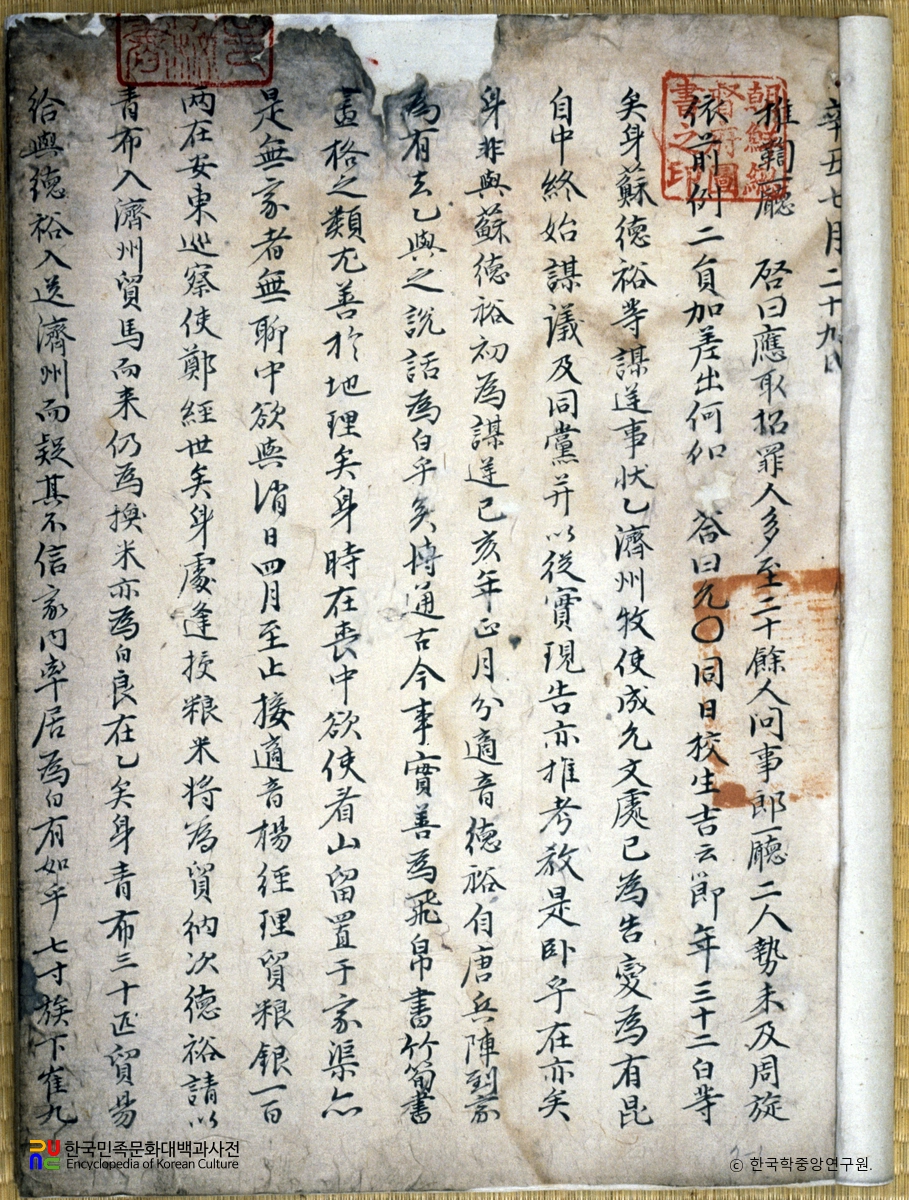 辛丑七月二十九日
推鞫廳 啓曰應取招罪人多至二十餘人問事郎廳二人勢未及周旋
依前例二員加差出何如 答曰允○同日校生吉云節年三十二白等
矣身蘇德裕等謀逆事狀乙濟州牧使成允文處已爲告變爲有昆
自中終始謀議及同黨并以從實現告亦推考教是臥乎在亦矣
身非與蘇德裕初爲謀逆已亥年正月分適音德裕自唐兵陣到家
爲有去乙與之說話爲白乎矣博通古今事實善爲飛帛書竹筍書
畫格之類尤善於地理矣身時在喪中欲使看山留置于家渠亦
是無家者無聊中欲與消日四月至止接適音楊經理貿粮銀一百
兩在安東巡察使鄭經世矣身處逢授粮米將爲貿納次德裕請以
青布入濟州貿馬而来仍爲換米亦爲白良在乙矣身青布三十疋貿易
給與德裕入送濟州而疑其不信家内率居爲白有如乎七寸族下崔九
朝鮮總督府圖書之印
한국민족문화대백과사전
Encyclopedia of Korean Culture
ⓒ 한국학중앙연구원.